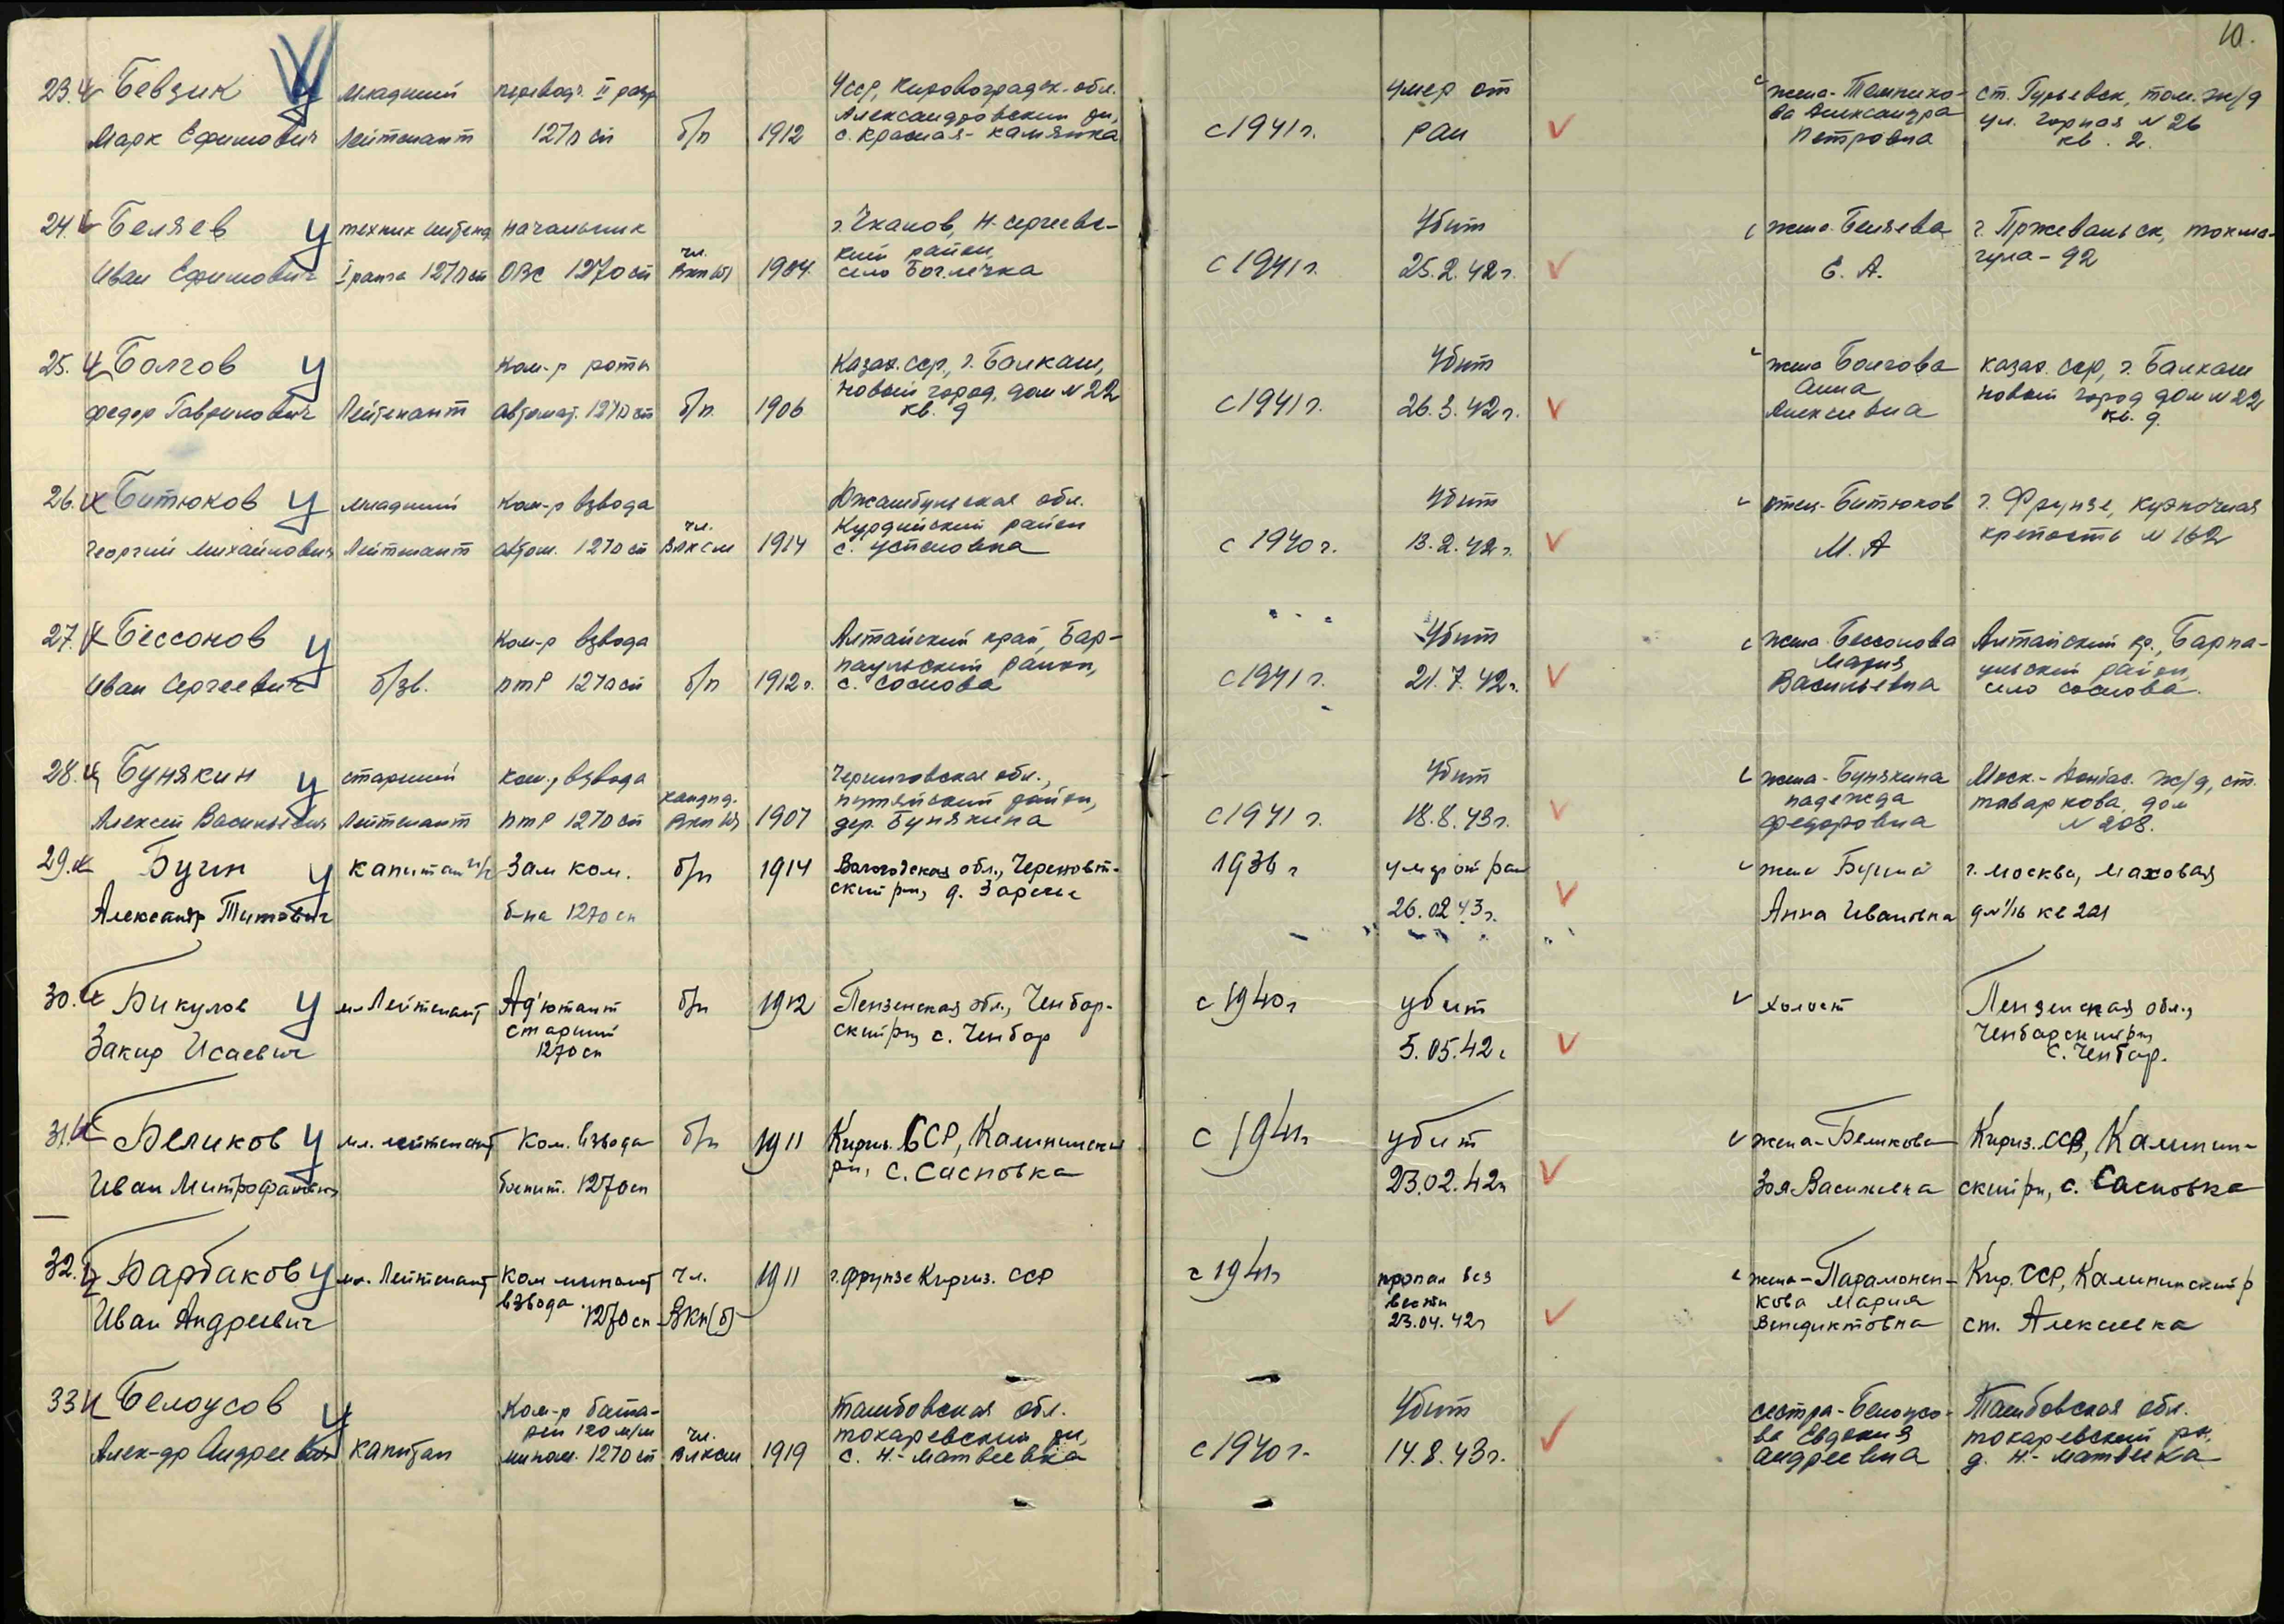 10.
23. Бевзик У младший переводч. II разр УССР, Кировоградск. обл. умер от жена - Темнико- ст. Гурьевск, том. ж/д
Александровский рн, ва Александра ул. Горная N 26
Марк Ефимович Лейтенант 1270 сп б/п 1912 с. Красная - Камянка с 1941 г. ран Петровна кв. 2.
24. Беляев У техник интенд начальник г. Чкалов, Н. Сергеевс- Убит жена Беляева г. Пржевальск, токма-
чл. кий район, гула - 92
Иван Ефимович I ранга 1270 сп ОВС 1270 сп ВКП(б) 1904 село с 1941 г. 25.2.42 г. Е. А.
25. Болгов У Ком-р роты Казах. сср, г. Балхаш, Убит жена Болгова Казах. сср, г. Балхаш
Новый город, дом N 22 Анна Новый город дом N 22
Федор Гаврилович Лейтенант автомат. 1270 сп б/п. 1906 кв. 9 с 1941 г. 26.3.42 г. Алексеевна кв. 9.
26. Битюков У младший Ком-р взвода Джамбульская обл. Убит отец - Битюков г. Фрунзе, Кузнечная
чл. Курдайский район крепость N 162
Георгий Михайлович Лейтенант автом. 1270 сп ВЛКСМ 1914 с. Успеновка с 1940 г. 13.2.42 г. М. А
27. Бессонов У Ком-р взвода Алтайский край, Бар- Убит жена Бессонова Алтайский кр., Барна-
наульский район, Мария ульский район,
Иван Сергеевич б/зв. ПТР 1270 сп б/п 1912 г. с. Соснова с 1941 г. 21.7.42 г. Васильевна село Соснова.
28. Бунякин У старший ком. взвода Черниговская обл., Убит жена - Бунякина Моск. - Донбас. ж/д, ст.
кандид. район, надежда таваркова, дом
Алексей Васильевич Лейтенант ПТР 1270 сп ВКП(б) 1907 дер. Бунякина с 1941 г. 18.8.43 г. Федоровна N 208.
29. Бугин У капитан Зам ком. б/п 1914 Вологодская обл., Черепове- 1936 г умер от ран жена г. Москва, Маховая
ский рн, д. Заречье
Александр Титович б-на 1270 сп 26.02.43 г. Анна Ивановна д N 1/16 кв 201
30. Бикулов У мл Лейтенант Ад'ютант б/п 1912 Пензенская обл., Чембар- с 1940 г убит холост Пензенская обл.,
старший ский рн, с. Чембар Чембарский рн,
Закир Исаевич 1270 сп 5.05.42 г с. Чембар.
31. Беликов У мл. лейтенант Ком. взвода б/п 1911 Киргиз. ССР, Калининский с 1941 г убит жена - Беликова Киргиз. ССР, Калинин-
рн, с. Сасновка
Иван Митрофанович 1270 сп 23.02.42 г Зоя Васильевна ский рн, с. Сасновка
32. Барбаков У мл. Лейтенант Ком минамет чл. 1911 г. Фрунзе Киргиз. ССР с 1941 г пропал без жена - Парамонен- Кир. ССР, Калининский р
взвода вести кова Мария
Иван Андреевич 1270 сп ВКП(б) 23.04.42 г Венидиктовна ст. Алексеевка
33. Белоусов У Ком-р бата- Тамбовская обл. Убит сестра - Белоусо- Тамбовская обл.
реи 120 м/м чл. токаревский рн, ва Евдокия токаревский рн.
Алек-др Андреевич капитан мином. 1270 сп ВЛКСМ 1919 с. Н. - Матвеевка с 1940 г. 14.8.43 г. Андреевна д. Н. - Матвеевка